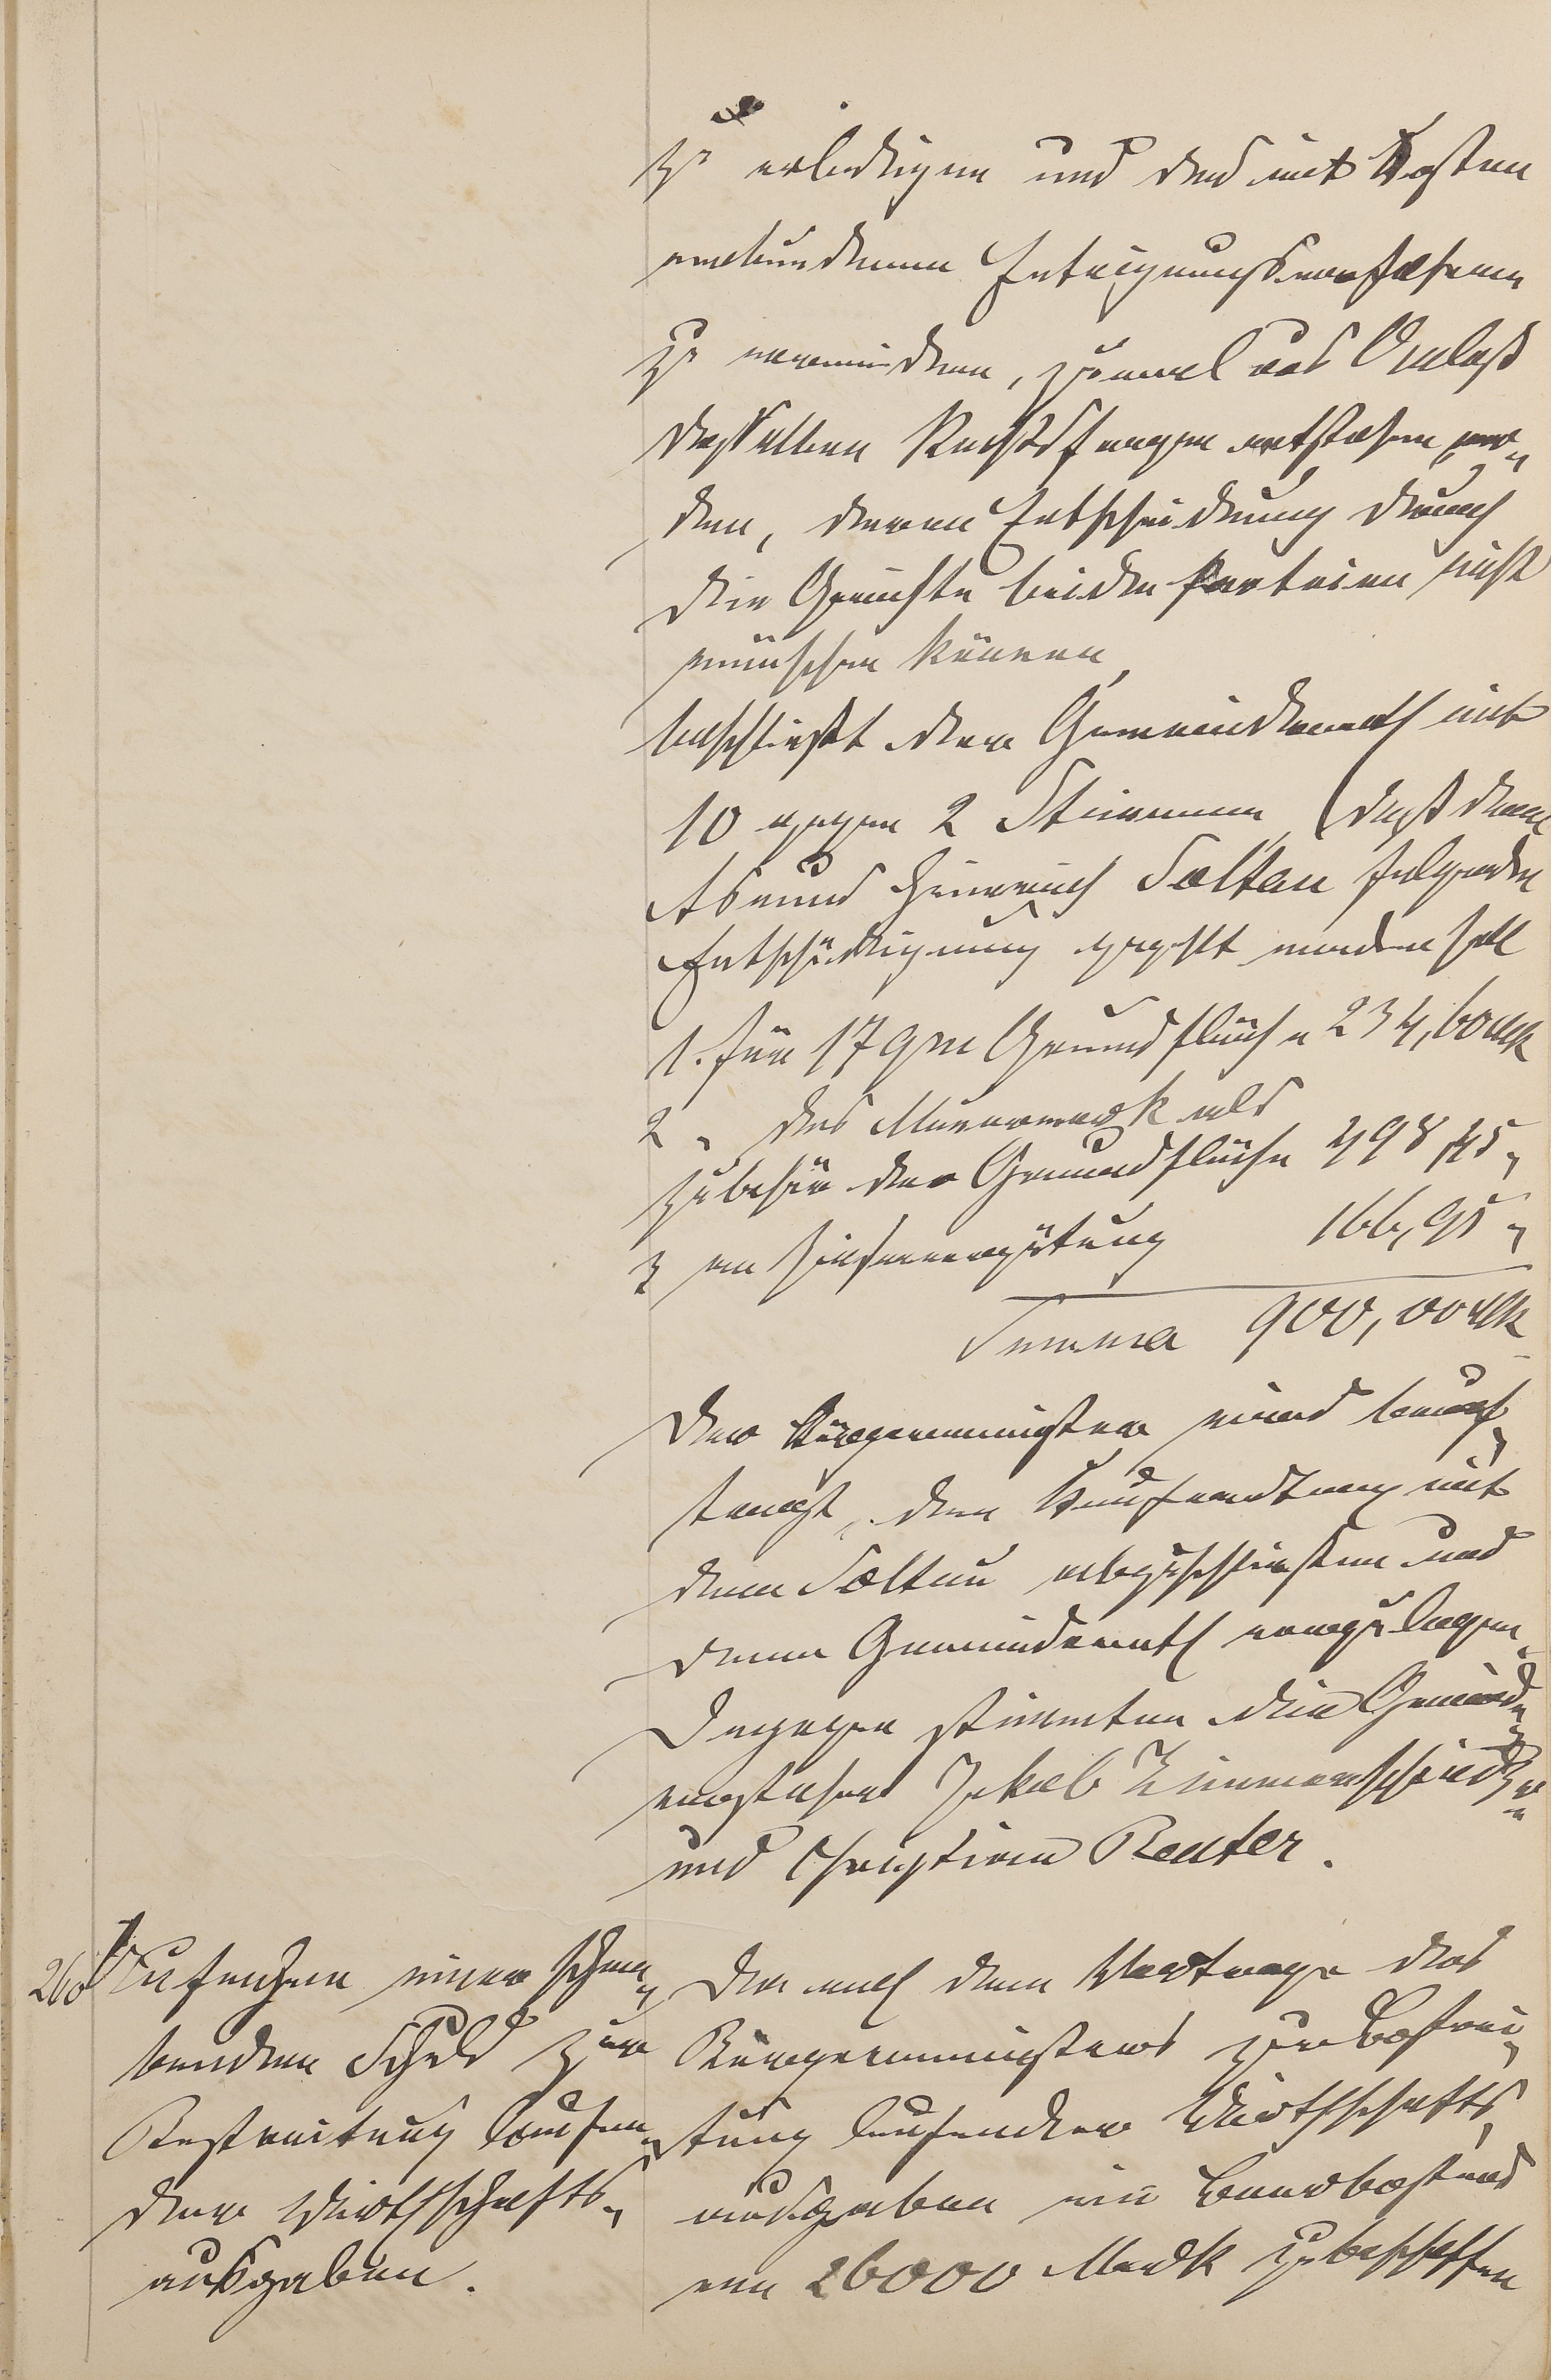 zu erledigen und das mit Kosten
verbundene Enteignungsverfahren
zu vermeiden, zumal aus Anlaß
desselben Rechtsfragen entstehen wer„
den, deren Entscheidung durch
die Gerichte beide Parteien nicht
wünschen können,
beschließt der Gemeinderath mit
10 gegen 2 Stimmen, daß dem
Asmus Heinrich Soltau folgende
Entschädigung gezahlt werden soll
1. für 17 qm Grundfläche 234,60 Mk
2 „ das Mauerwerk als
Zubehör der Grundfläche 498,45 „
3 an Zinsenvergütung 166,95 „
Summa 900,00 Mk
Der Bürgermeister wird beauf„
tragt, den Kaufvertrag mit
dem Soltau abzuschließen und
dem Gemeinderath vorzulegen.
Dagegen stimmten die Gemeinde„
vorsteher Jakob Zimmerschied
und Christian Reuter.
260 Aufnahme einer schwe„
benden Schuld zur
Bestreitung laufen„
der Wirthschafts„
ausgaben.
Der nach dem Vortrage des
Bürgermeisters zur Bestrei„
tung laufender Wirthschafts„
ausgaben ein Baarbestand
von 26000 Mark zu beschaffen